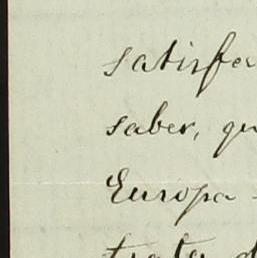 satisfa
saber, qu
Europa -
trata, d